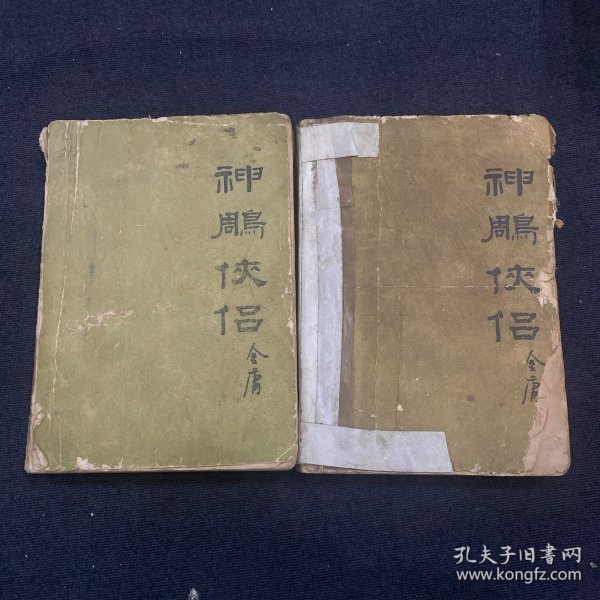 神鵰俠侶
金庸
神鵰俠侶
金庸
孔夫子旧書网
www.kongfz.com